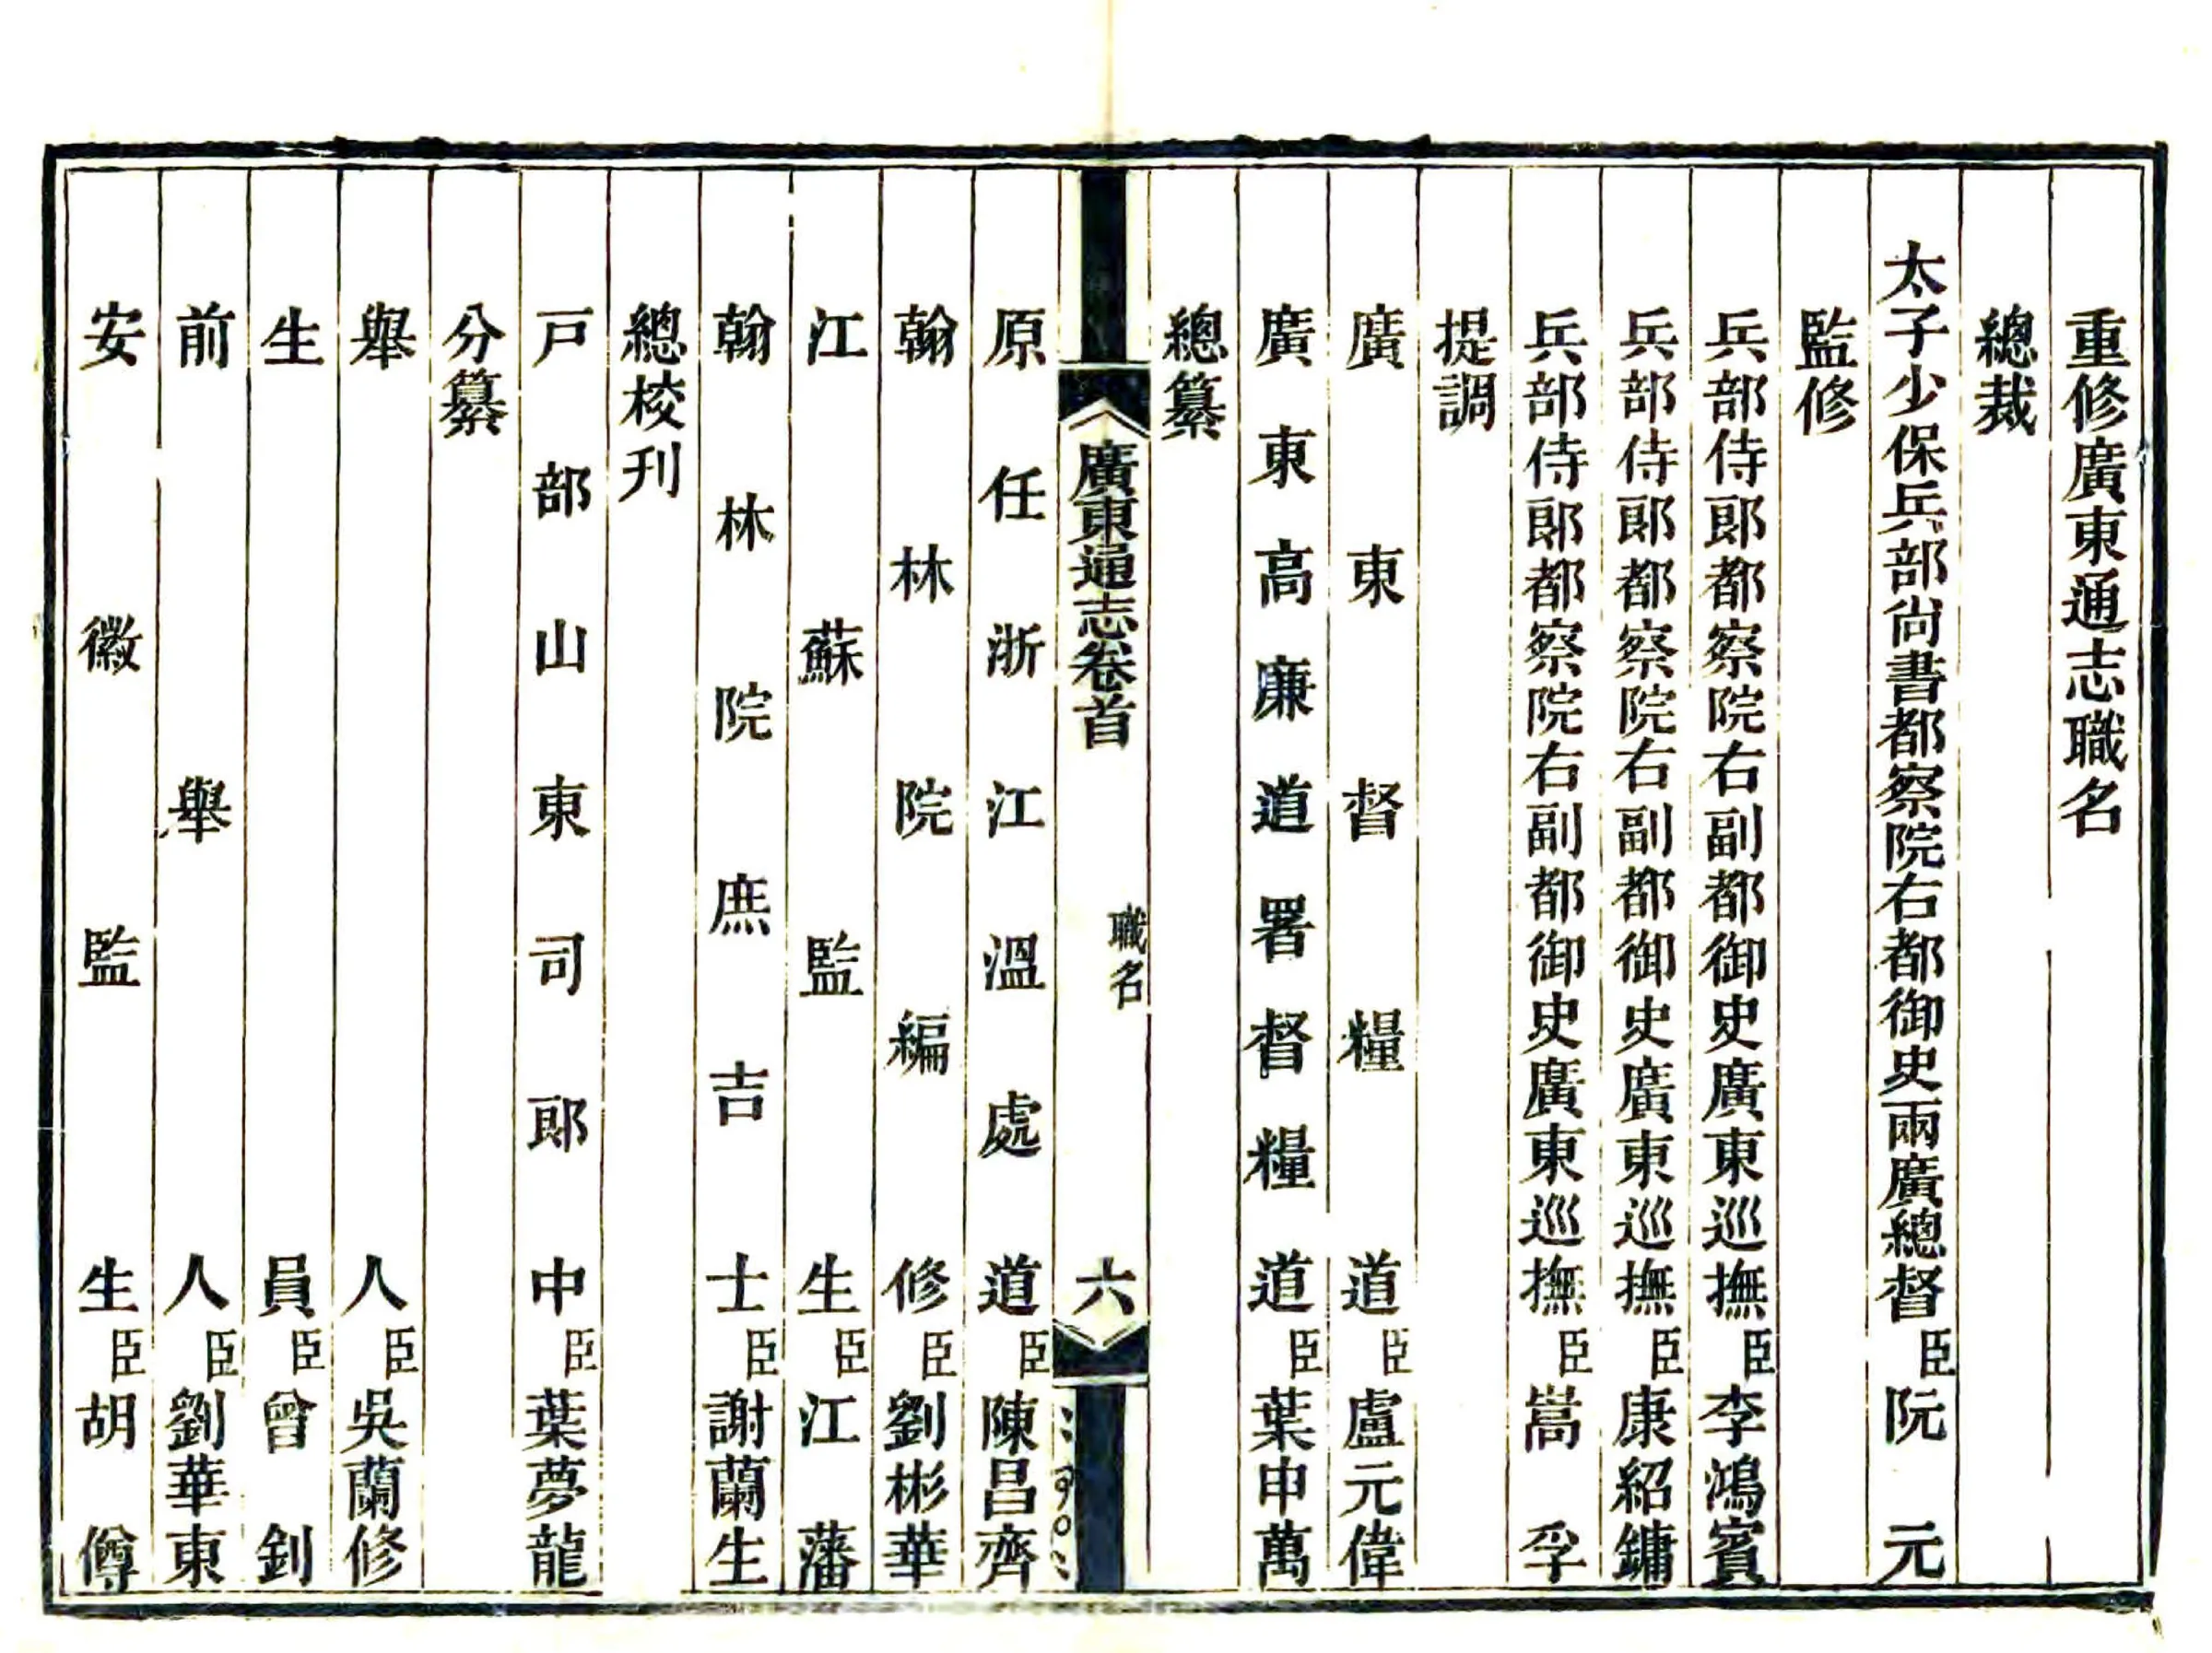 重修廣東通志職名
總裁
太子少保兵部尙書都察院右都御史兩廣總督臣阮元
監修
兵部侍郞都察院右副都御史廣東巡撫臣李鴻賓
兵部侍郞都察院右副都御史廣東巡撫臣康紹鏞
兵部侍郞都察院右副都御史廣東巡撫臣嵩孚
提調
廣東督糧道臣盧元偉
廣東高廉道署督糧道臣葉申萬
總纂
廣東通志卷首 職名 六
原任浙江溫處道臣陳昌齊
翰林院編修臣劉彬華
江蘇監生臣江藩
翰林院庶吉士臣謝蘭生
總校刊
戸部山東司郞中臣葉夢龍
分纂
舉人臣吳蘭修
生員臣曾釗
前舉人臣劉華東
安徽監生臣胡